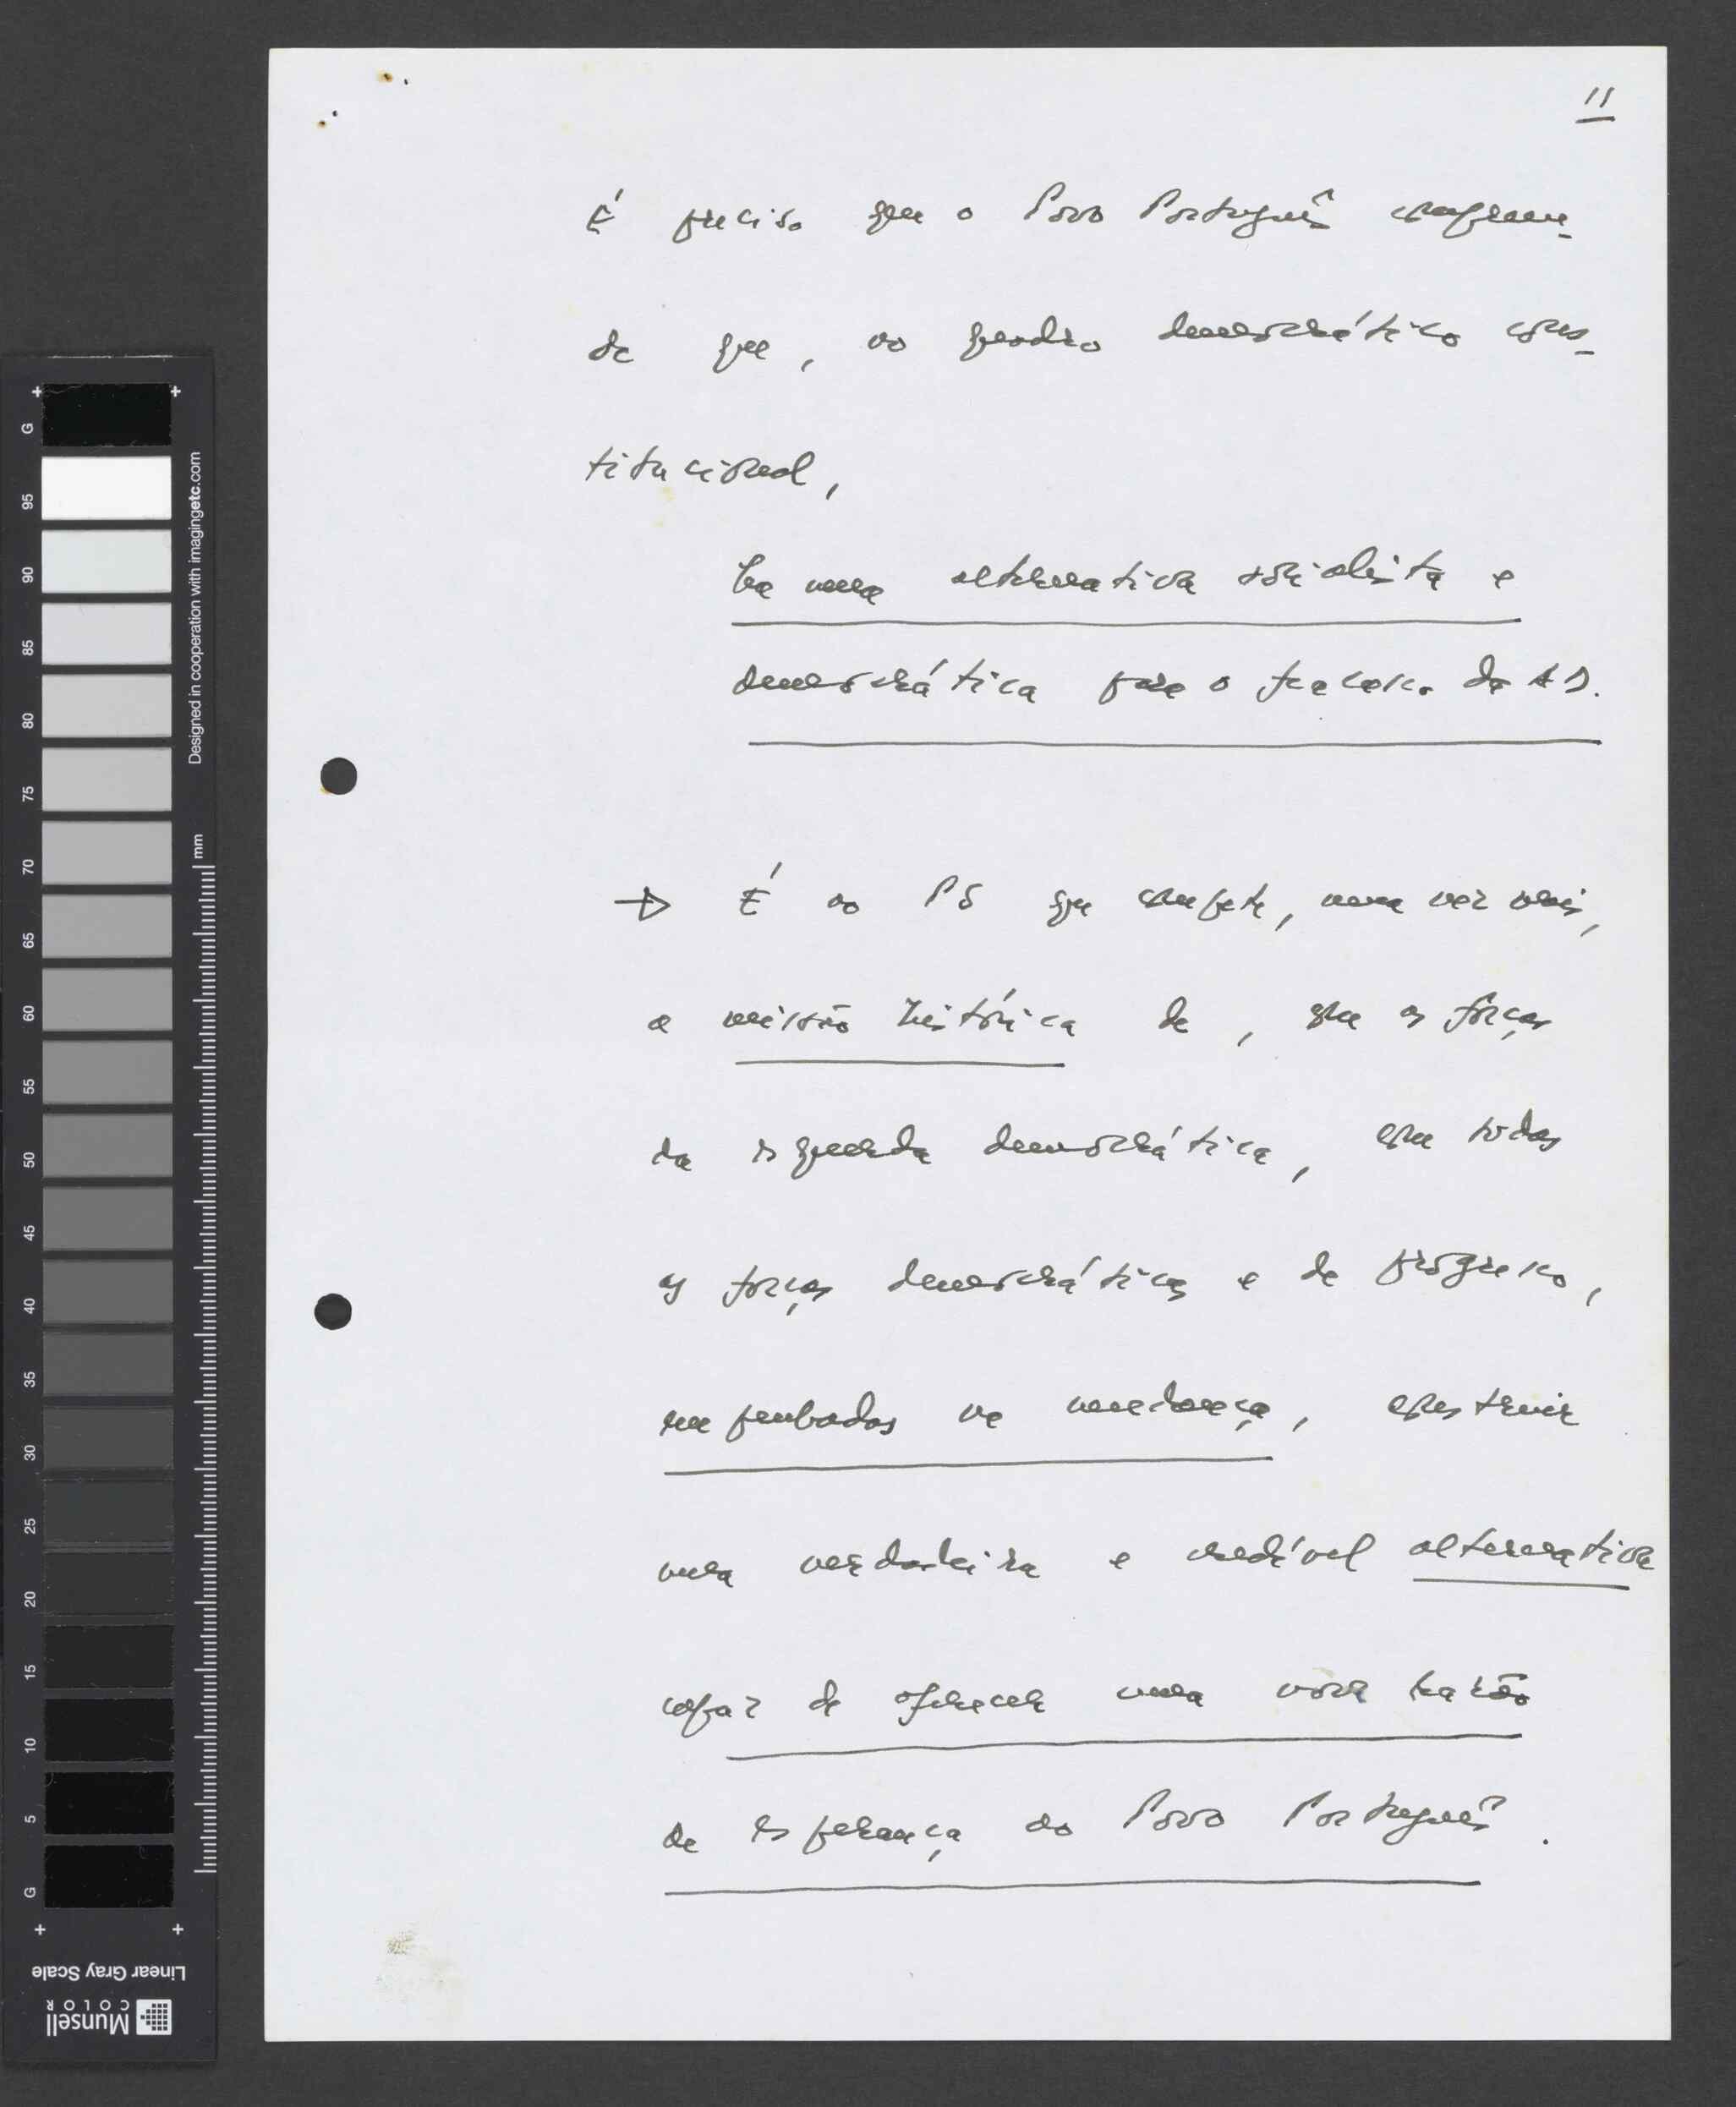 11
É preciso que o Povo Português compreen-
da que, no quadro democrático cons-
titucional,
há uma alternativa socialista e
democrática para o fracasso da AD.
→ É ao PS que compete, uma vez mais,
a missão histórica de, com as forças
da esquerda democrática, com todas
as forças democráticas e de progresso,
empenhadas na mudança, construir
uma verdadeira e credível alternativa
capaz de oferecer uma nova razão
de esperança ao Povo Português.
G
95
90
85
80
75
70
65
60
55
50
45
40
35
30
25
20
15
10
5
G
Designed in cooperation with imagingetc.com
mm
Linear Gray Scale
Munsell
COLOR